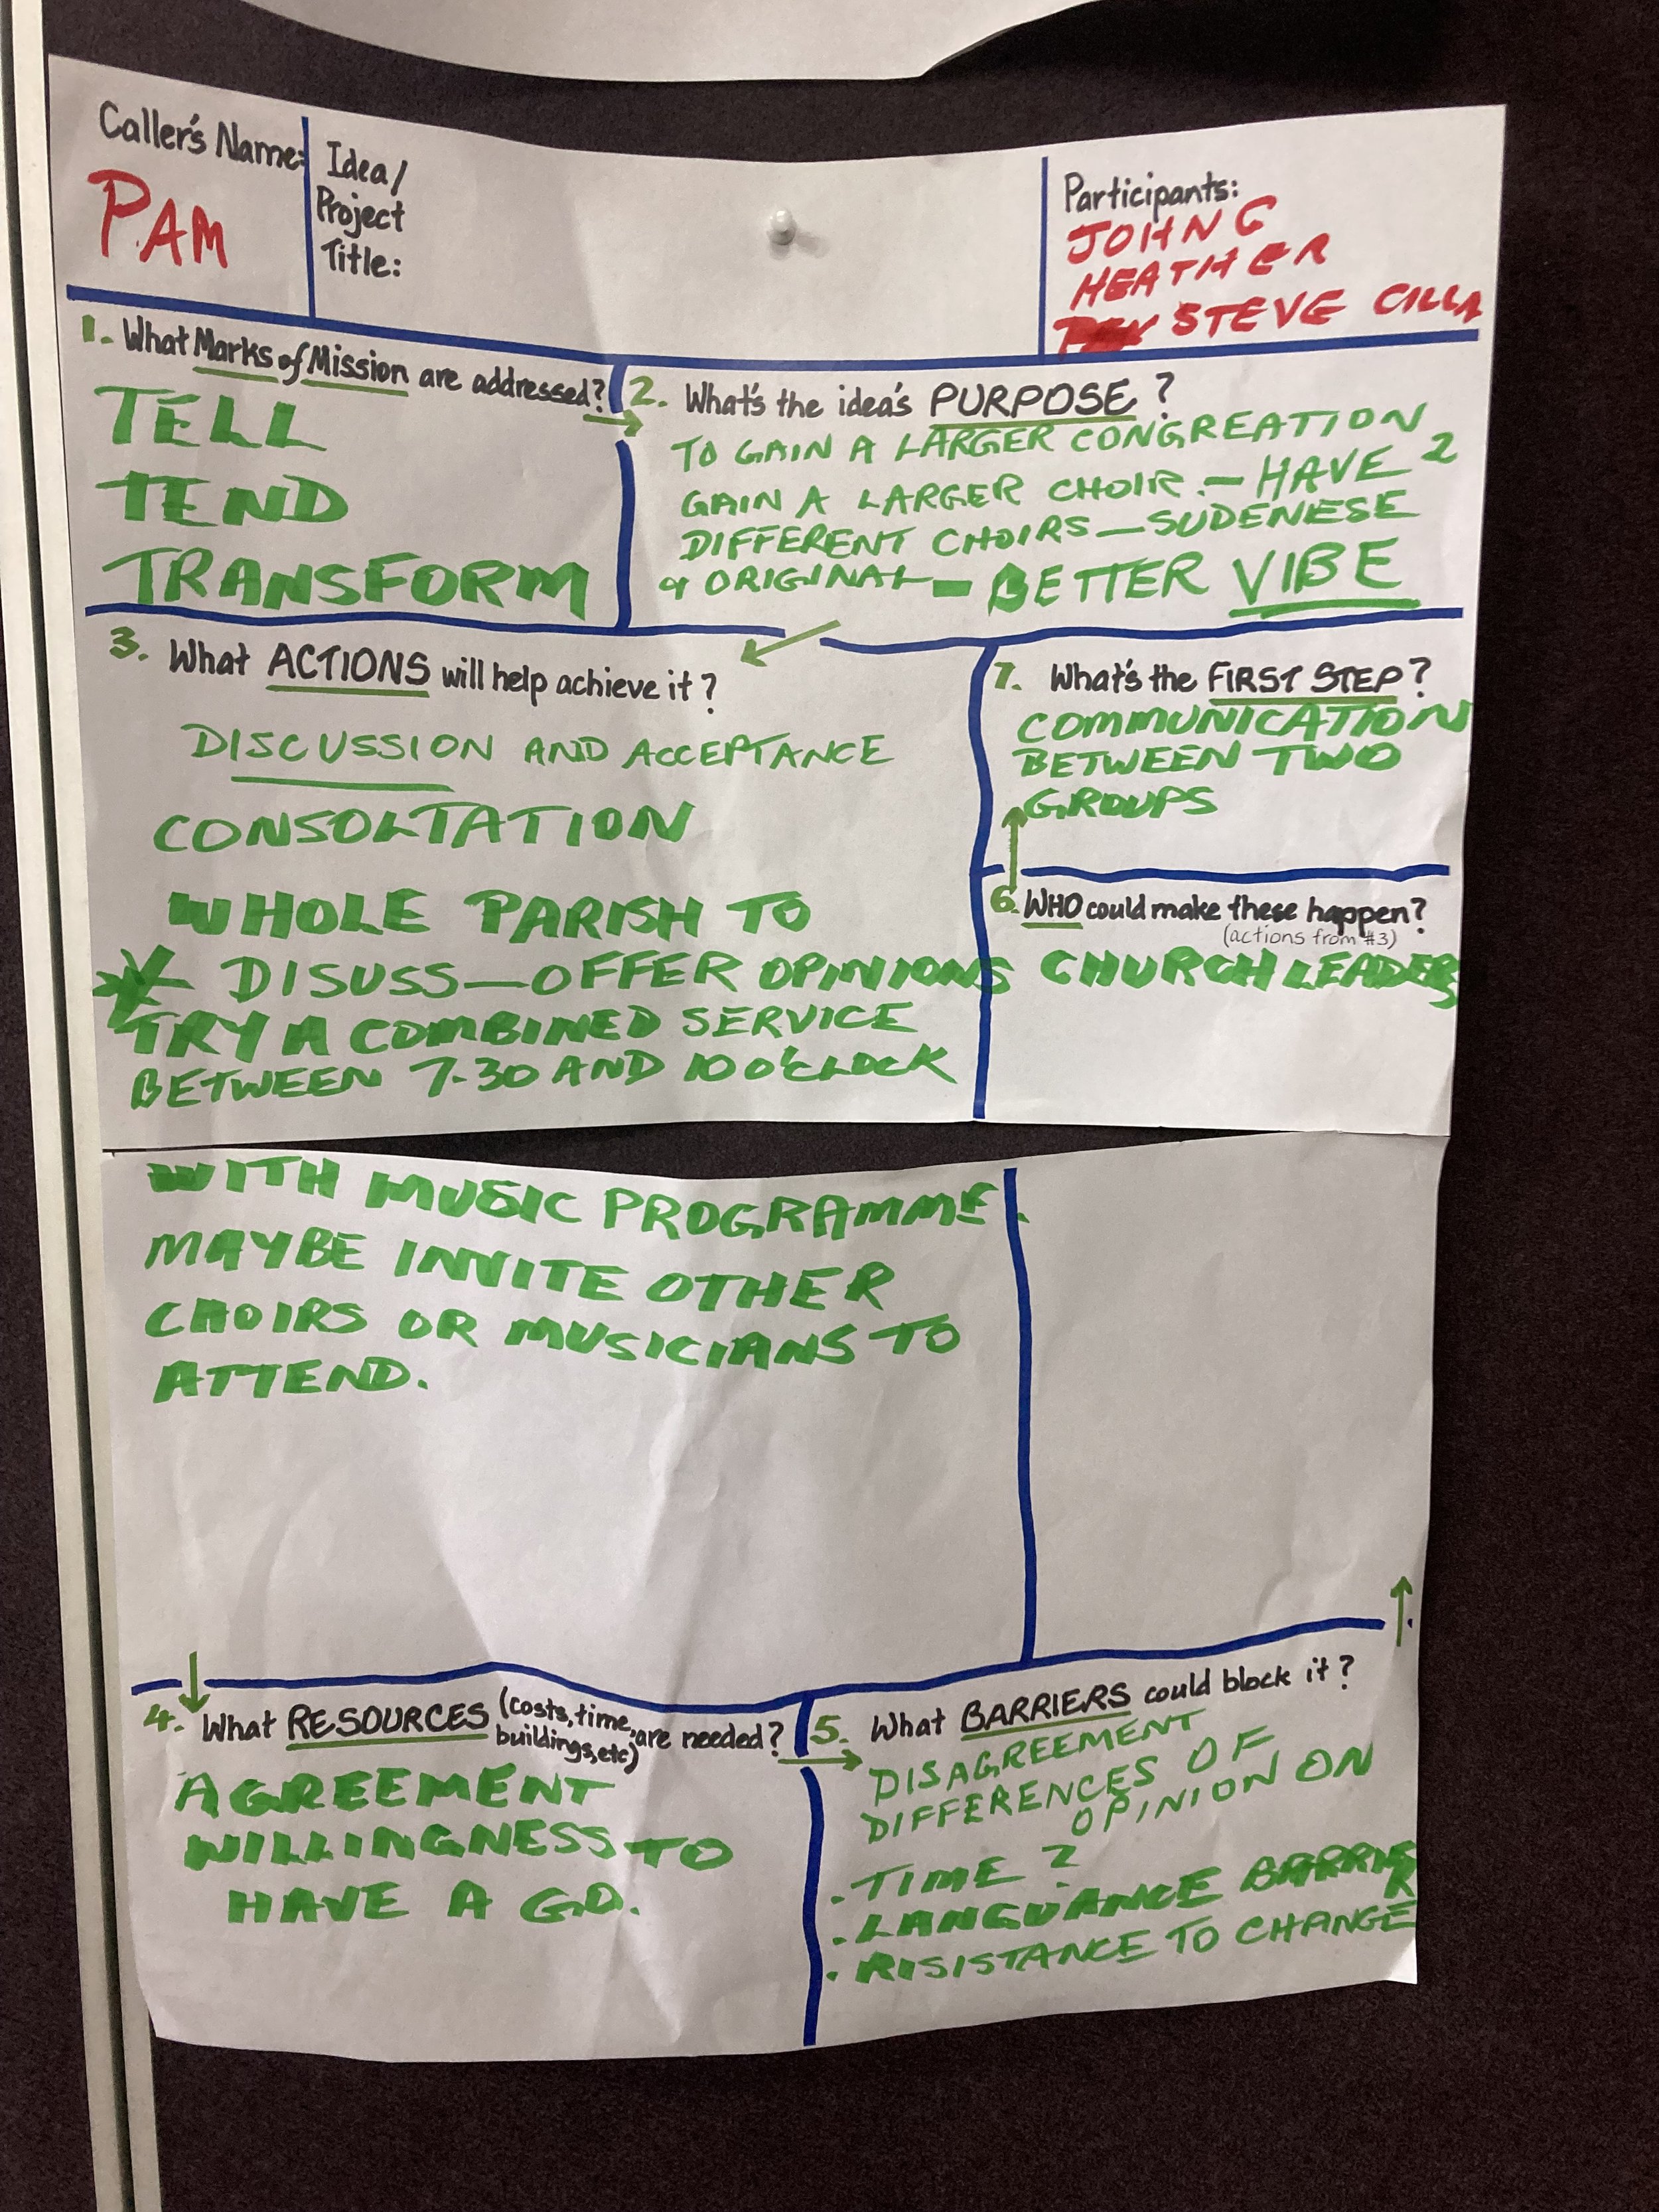 Caller's Name:
PAM
Idea/
Project
Title:
Participants:
JOHN G
HEATHER
STEVE CILLA
1. What Marks of Mission are addressed?
TELL
TEND
TRANSFORM
2. What's the idea's PURPOSE?
TO GAIN A LARGER CONGREATION
GAIN A LARGER CHOIR. — HAVE 2
DIFFERENT CHOIRS — SUDENESE
& ORIGINAL — BETTER VIBE
3. What ACTIONS will help achieve it?
DISCUSSION AND ACCEPTANCE
CONSOLTATION
WHOLE PARISH TO
DISUSS — OFFER OPINIONS
TRY A COMBINED SERVICE
BETWEEN 7.30 AND 10 O'CLOCK
WITH MUSIC PROGRAMME.
MAYBE INVITE OTHER
CHOIRS OR MUSICIANS TO
ATTEND.
7. What's the FIRST STEP?
COMMUNICATION
BETWEEN TWO
GROUPS
6. WHO could make these happen?
(actions from #3)
CHURCH LEADERS
4. What RESOURCES (costs, time, buildings, etc) are needed?
AGREEMENT
WILLINGNESS TO
HAVE A GO.
5. What BARRIERS could block it?
DISAGREEMENT
DIFFERENCES OF
OPINION ON
. TIME ?
. LANGUANCE BARRIER
. RISISTANCE TO CHANGE